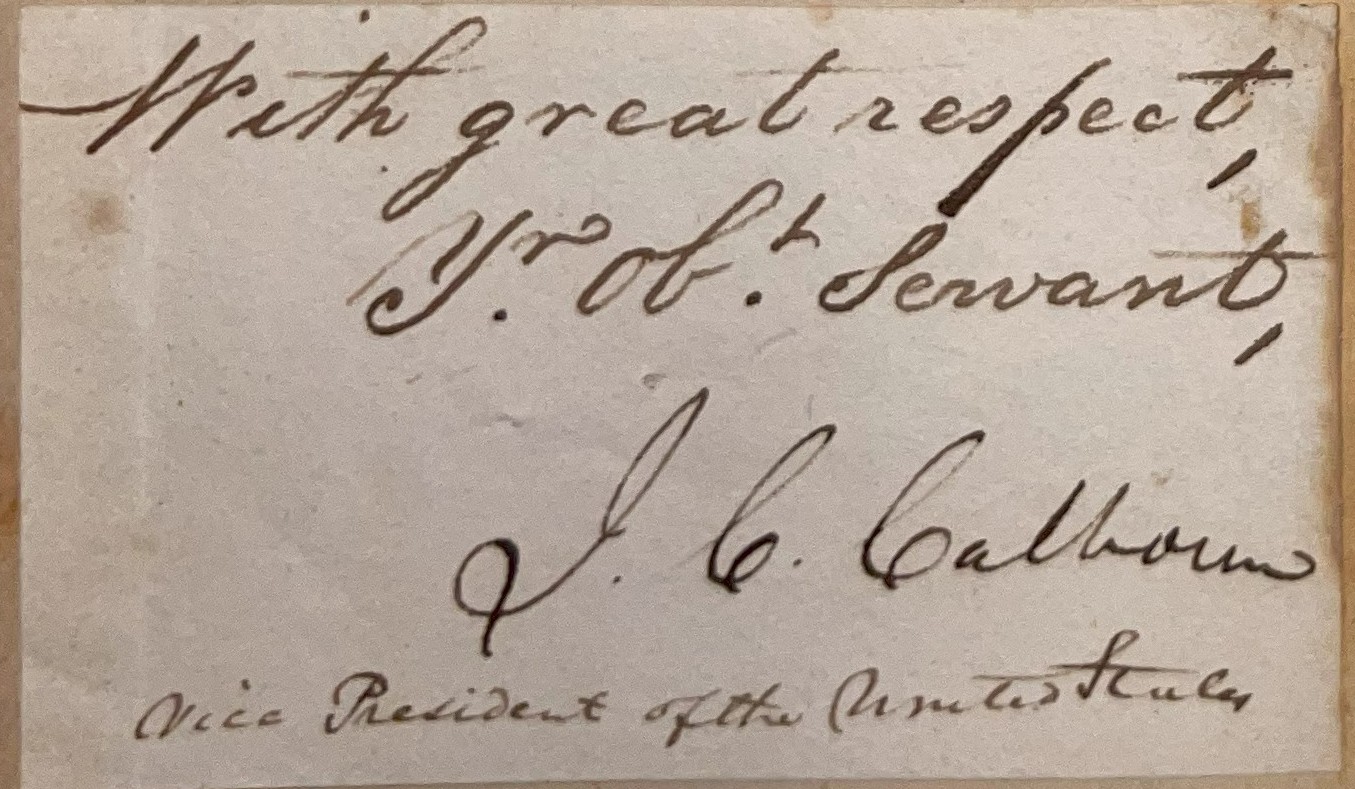 With great respect,
Yr. Obt. Servant,
J. C. Calhoun
Vice President of the United States